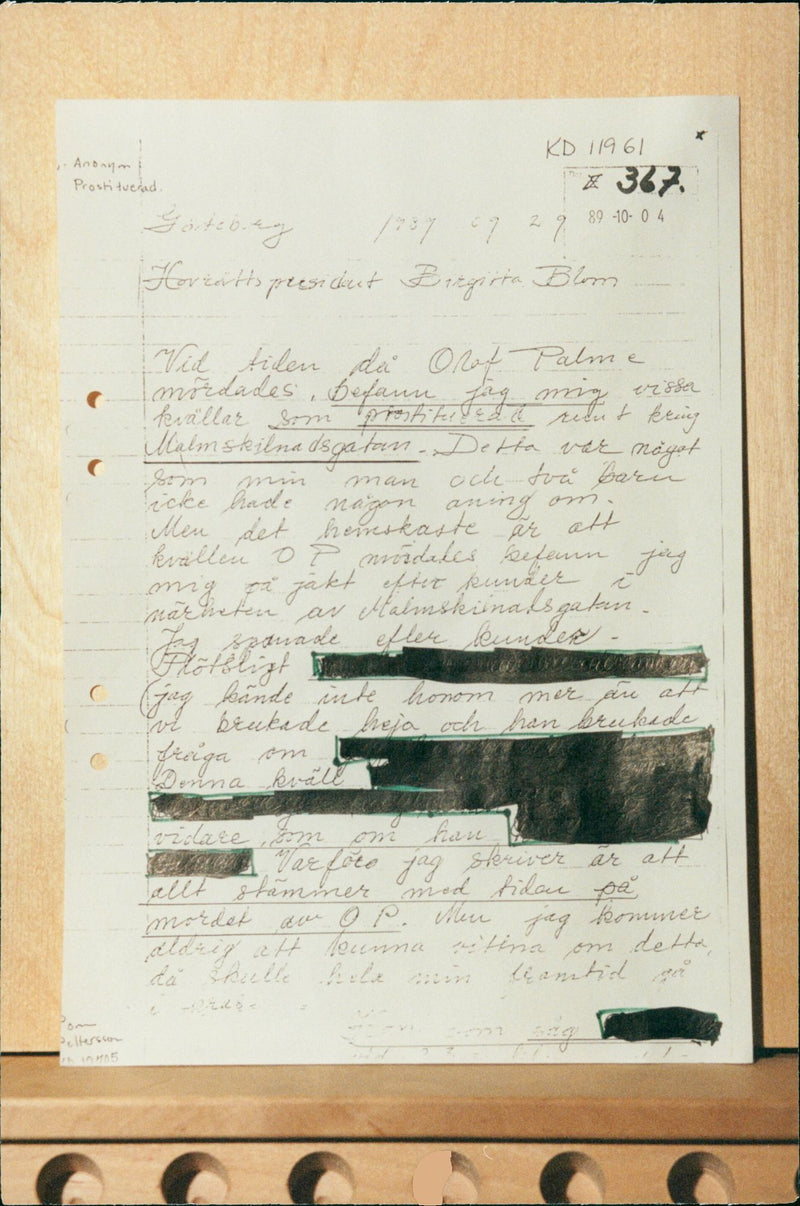 KD 11961
Anonym
Prostituerad.
367.
89-10-04
Göteborg 1989 09 29
Hovrättspresident Birgitta Blom
Vid tiden då Olof Palme
mördades, befann jag mig vissa
kvällar som prostituerad runt kring
Malmskilnadsgatan. Detta var något
som min man och två barn
icke hade någon aning om.
Men det hemskaste är att
kvällen O P mördades befann jag
mig på jakt efter kunder i
närheten av Malmskilnadsgatan.
Jag spanade efter kunder.
Plötsligt
(jag kände inte honom mer än att
vi brukade heja och han brukade
fråga om
Denna kväll
vidare, som om han
Varföre jag skriver är att
allt stämmer med tiden på
mordet av O P. Men jag kommer
aldrig att kunna vittna om detta,
då skulle hela min framtid gå
i
som såg